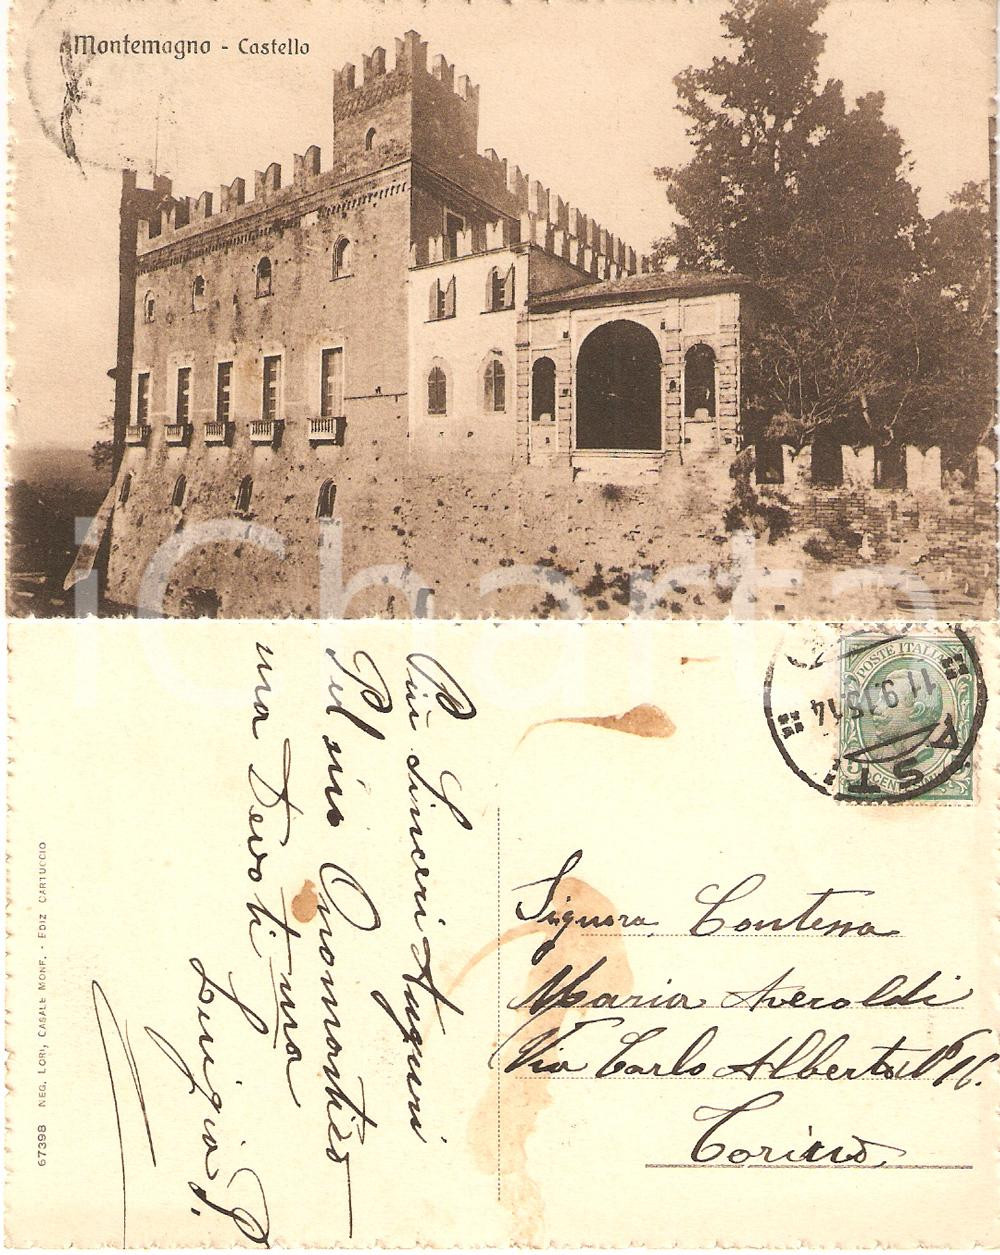 Montemagno - Castello
iCharta
POSTE ITALIANE
CENTESIMI
ASTI
11.9.15.14
Più Sinceri Auguri
Pel suo Onomastico
una Devotissima
Luigia P.
Signora Contessa
Maria Averoldi
Via Carlo Alberto N.
Torino
67398 NEG. LORI, CASALE MONF. - EDIZ CARTUCCIO